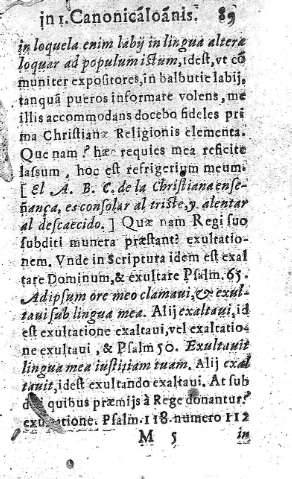 in 1. Canonicā Ioānis. 89
in loquela enim labij in lingua altera
loquar ad populum istum, idest, vt cō
muniter expositores, in balbutie labij,
tanquā pueros informare volens, me
illis accommodans docebo fideles pri
ma Christianæ Religionis elementa.
Que nam? hæc requies mea reficite
lassum, hoc est refrigerium meum.
[El A. B. C. de la Christiana ense-
ñança, es consolar al triste, y alentar
al descaecido.] Quæ nam Regi suo
subditi munera præstant? exultatio-
nem. Vnde in Scriptura idem est exal
tare Dominum, & exultare Psalm. 65.
Ad ipsum ore meo clamaui, & exal-
taui sub lingua mea. Alij exaltaui, id
est exultatione exaltaui, vel exaltatio-
ne exultaui, & Psalm 50. Exultauit
lingua mea iustitiam tuam. Alij exal
tauit, idest exultando exaltaui. At sub
quibus præmijs à Rege donantur?
Psalm. 118. numero 112
M 5 in